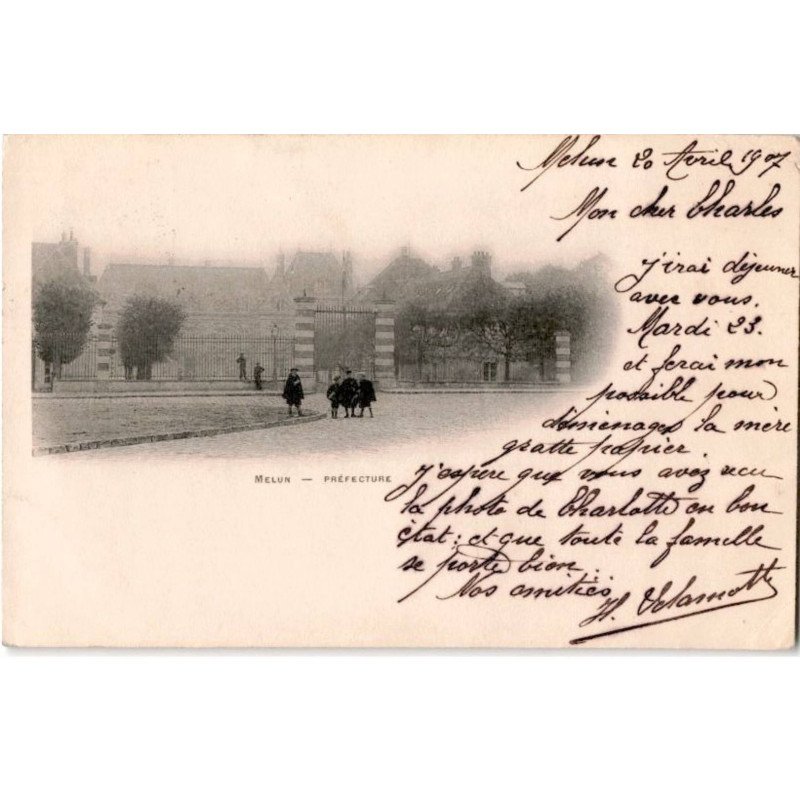 Melun 20 Avril 1907
Mon cher Charles
j'irai déjeuner
avec vous.
Mardi 23.
et ferai mon
possible pour
déménager la mère
gratte papier.
J'espère que vous avez recu
la photo de Charlotte en bon
état: et que toute la famelle
se porte bien.
Nos amitiés
H.
MELUN — PRÉFECTURE